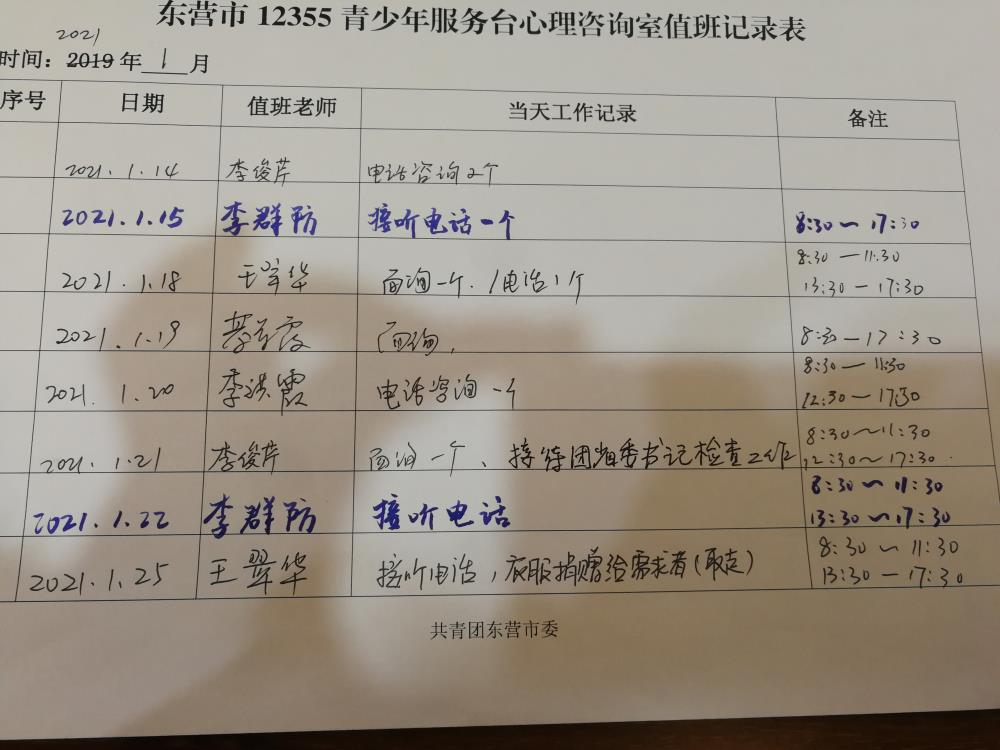 东营市 12355 青少年服务台心理咨询室值班记录表
2021
时间：2019 年 1 月
序号 日期 值班老师 当天工作记录 备注
2021.1.14 李俊芹 电话咨询2个
2021.1.15 李群防 接听电话一个 8:30～17:30
2021.1.18 王翠华 面询一个．/电话1个 8:30—11:30
13:30—17:30
2021.1.19 面询， 8:30—17:30
2021.1.20 李洪霞 电话咨询一个 8:30—11:30
12:30—17:30
2021.1.21 李俊芹 面询一个、接待团省委书记检查工作 8:30～11:30
12:30～17:30.
2021.1.22 李群防 接听电话 8:30～11:30
13:30～17:30
2021.1.25 王翠华 接听电话，衣服捐赠给需求者(取走) 8:30～11:30
13:30—17:30
共青团东营市委